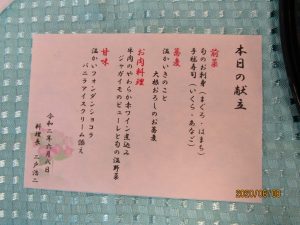 本日の献立
前菜
旬のお刺身(まぐろ・はまち)
手毬寿司(いくら・あなご)
蕎麦
温かいきのこと
大根おろしのお蕎麦
お肉料理
牛肉のやわらか赤ワイン煮込み
ジャガイモのピューレと旬の温野菜
甘味
温かいフォンダンショコラ
バニラアイスクリーム添え
令和二年六月八日
料理長 二戸浩二
2020/06/08